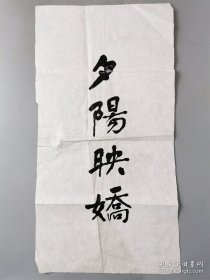 夕陽映嬌